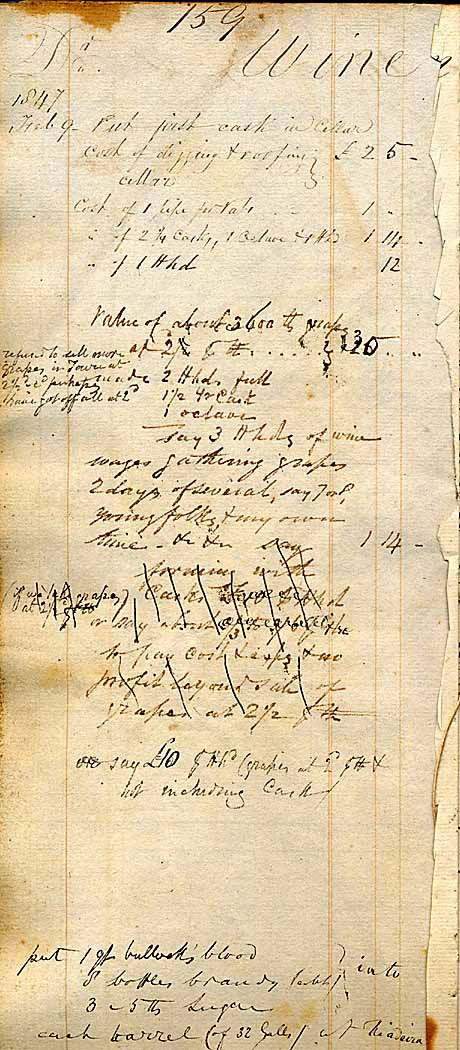 159
Wine
1847
Feb 9 - Put just cask in cellar
Cost of digging & roofing £ 2 5 -
cellar
Cost of 1 pipe 1 -
" of 2 1/4 Casks, 1 Octave & 1 Hhd 1 14 -
" of 1 Hhd 12
Value of about 3600 lb grapes
at 2 1/2 25
refused to sell more
grapes in Town at
2 1/2 perhaps
have got off all at 2d
made 2 Hhds full
1 1/2 Qr Cask
1 octave
say 3 Hhds of wine
wages gathering grapes
2 days of several, say 7 or 8,
young folks, & my own
time - &c &c say 1 14 -
with
Casks
or say about
to pay cost & & no
profit beyond sale of
grapes at 2 1/2 lb
or say £10 Hhd (grapes at 2d lb &
not including Cask
put 1 qt bullock's blood
8 bottles brandy into
3 - 5 lb Sugar
each barrel (of 32 Galls) at Madeira